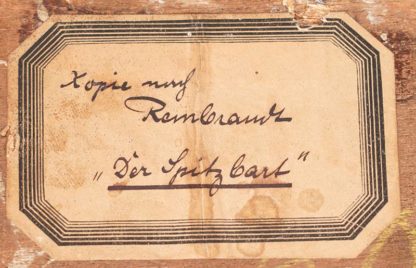 Kopie nach
Rembrandt
„Der Spitzbart"